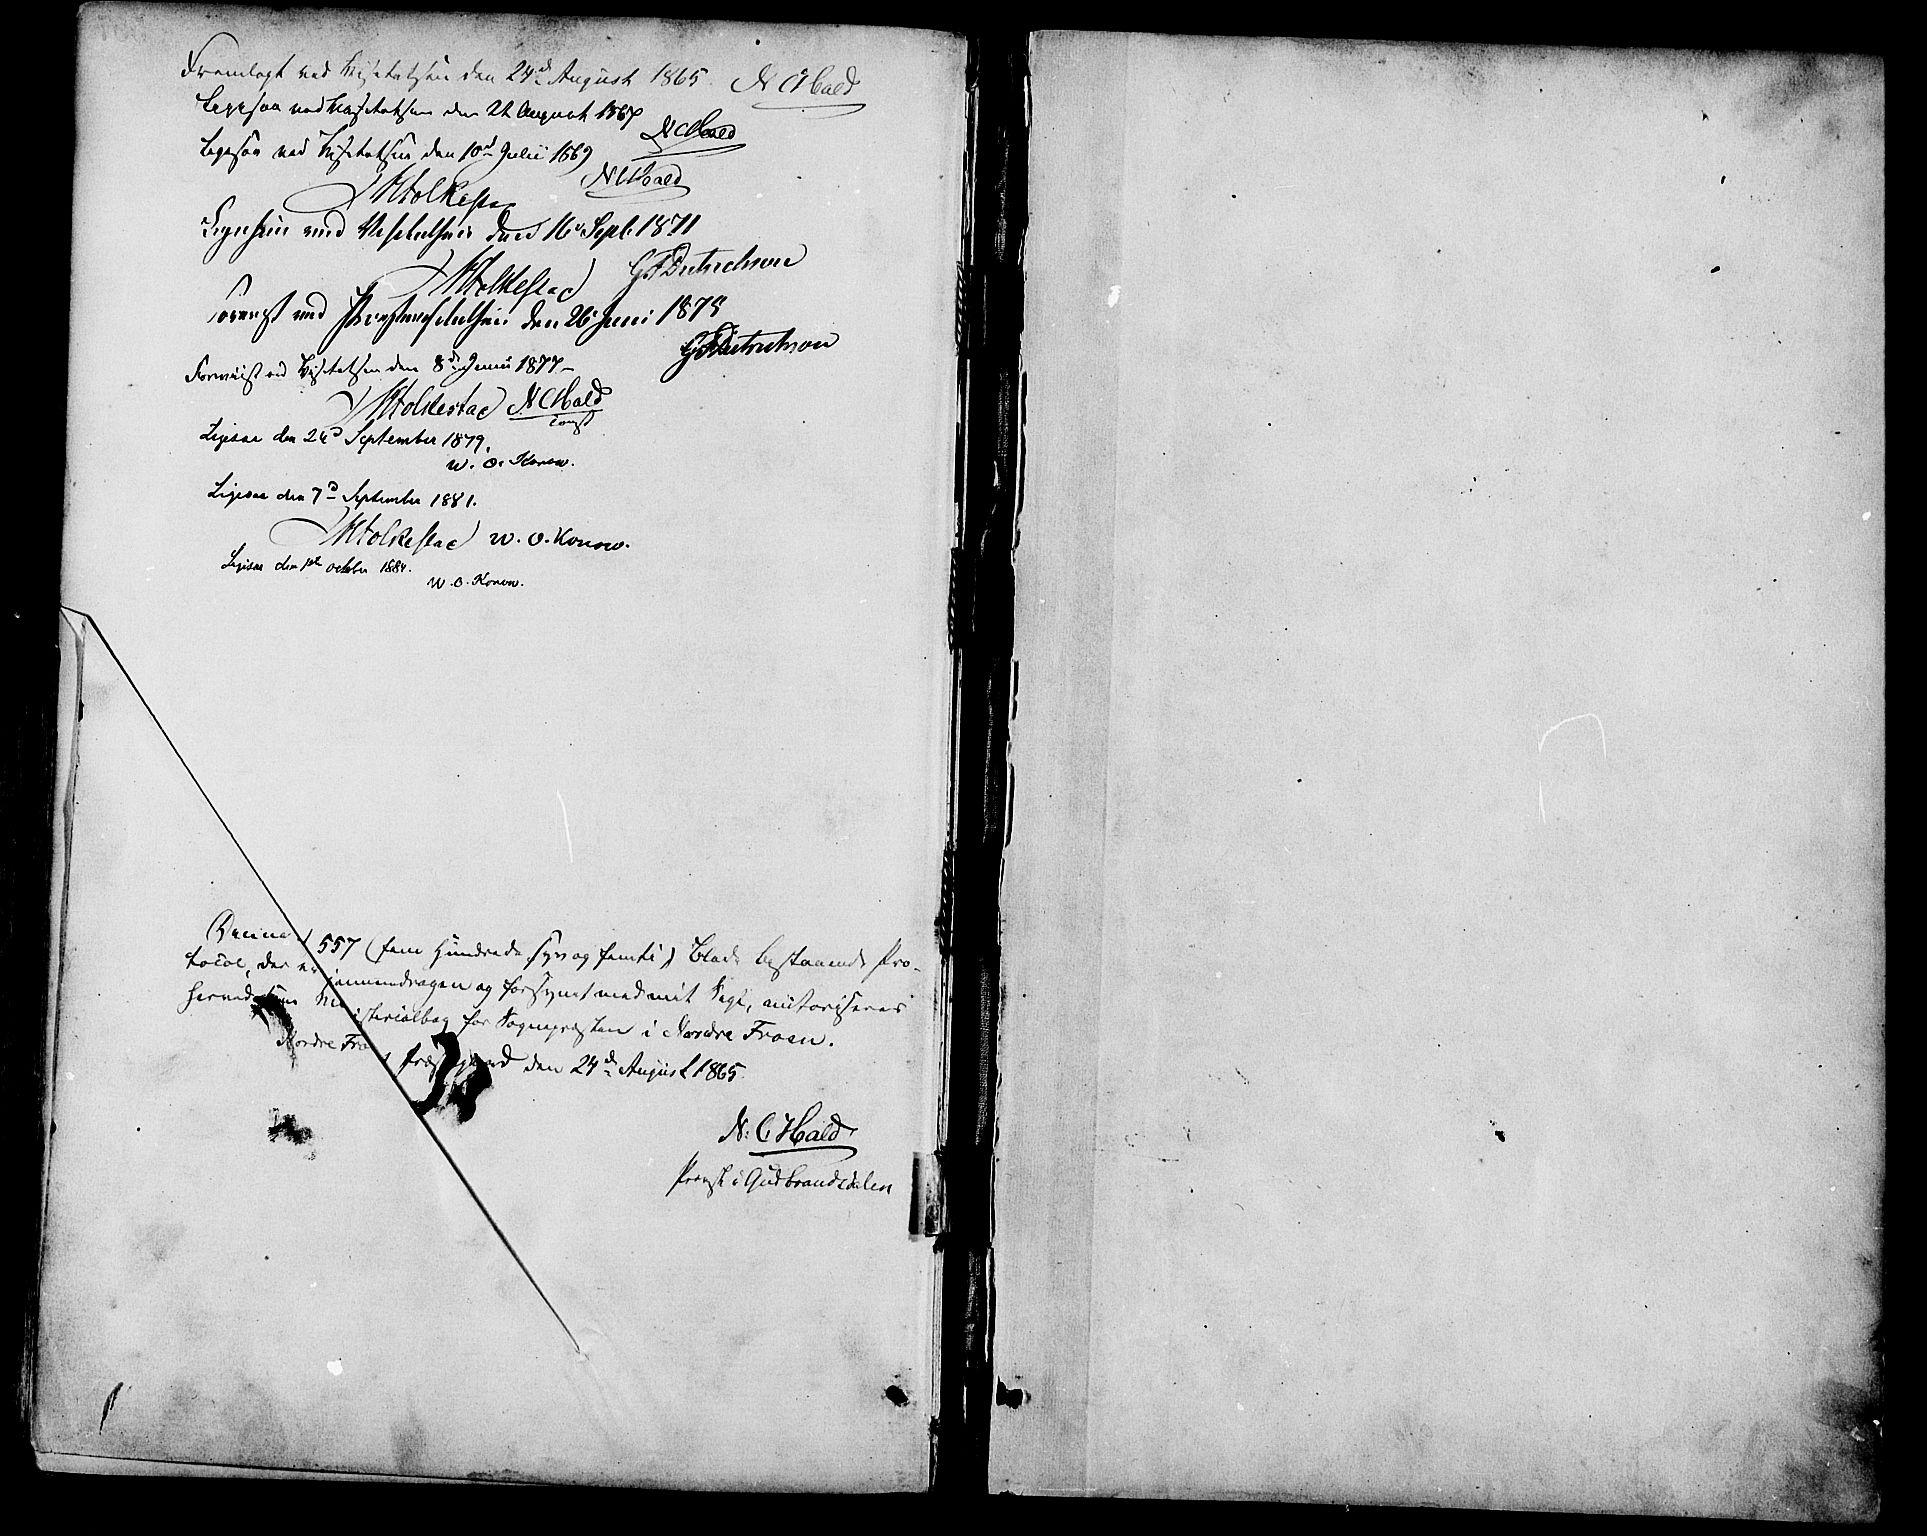 Fremlagt ved Visitatsen den 24de August 1865. N C Hald
Ligesaa ved Visitatsen den 21 August 1867
N C Hald
Ligesaa ved Visitatsen den 10de Julii 1869
N C Hald
Ligesaa ved Visitatsen den 16 Sept. 1871
G F Dietrichson
Forevist ved Provstevisitatsen den 26 Juni 1875
G F Dietrichson
Forevist ved Visitatsen den 8de Juni 1877 –
N C Hald
const
Ligesaa den 24de September 1879.
W. O. Konow.
Ligesaa den 7de September 1881.
W. O. Konow.
Ligesaa den 1ste October 1884.
W. O. Konow.
Denne af 557 (fem Hundrede syv og femti) Blade bestaaende Pro-
tocol, der er gjennemdragen og forsynet med mit Segl, autoriseres
herved som Ministerialbog for Sognepræsten i Nordre Froen.
Nordre Froens Præstegaard den 24de August 1865.
N. C. Hald
Provst i Gudbrandsdalen